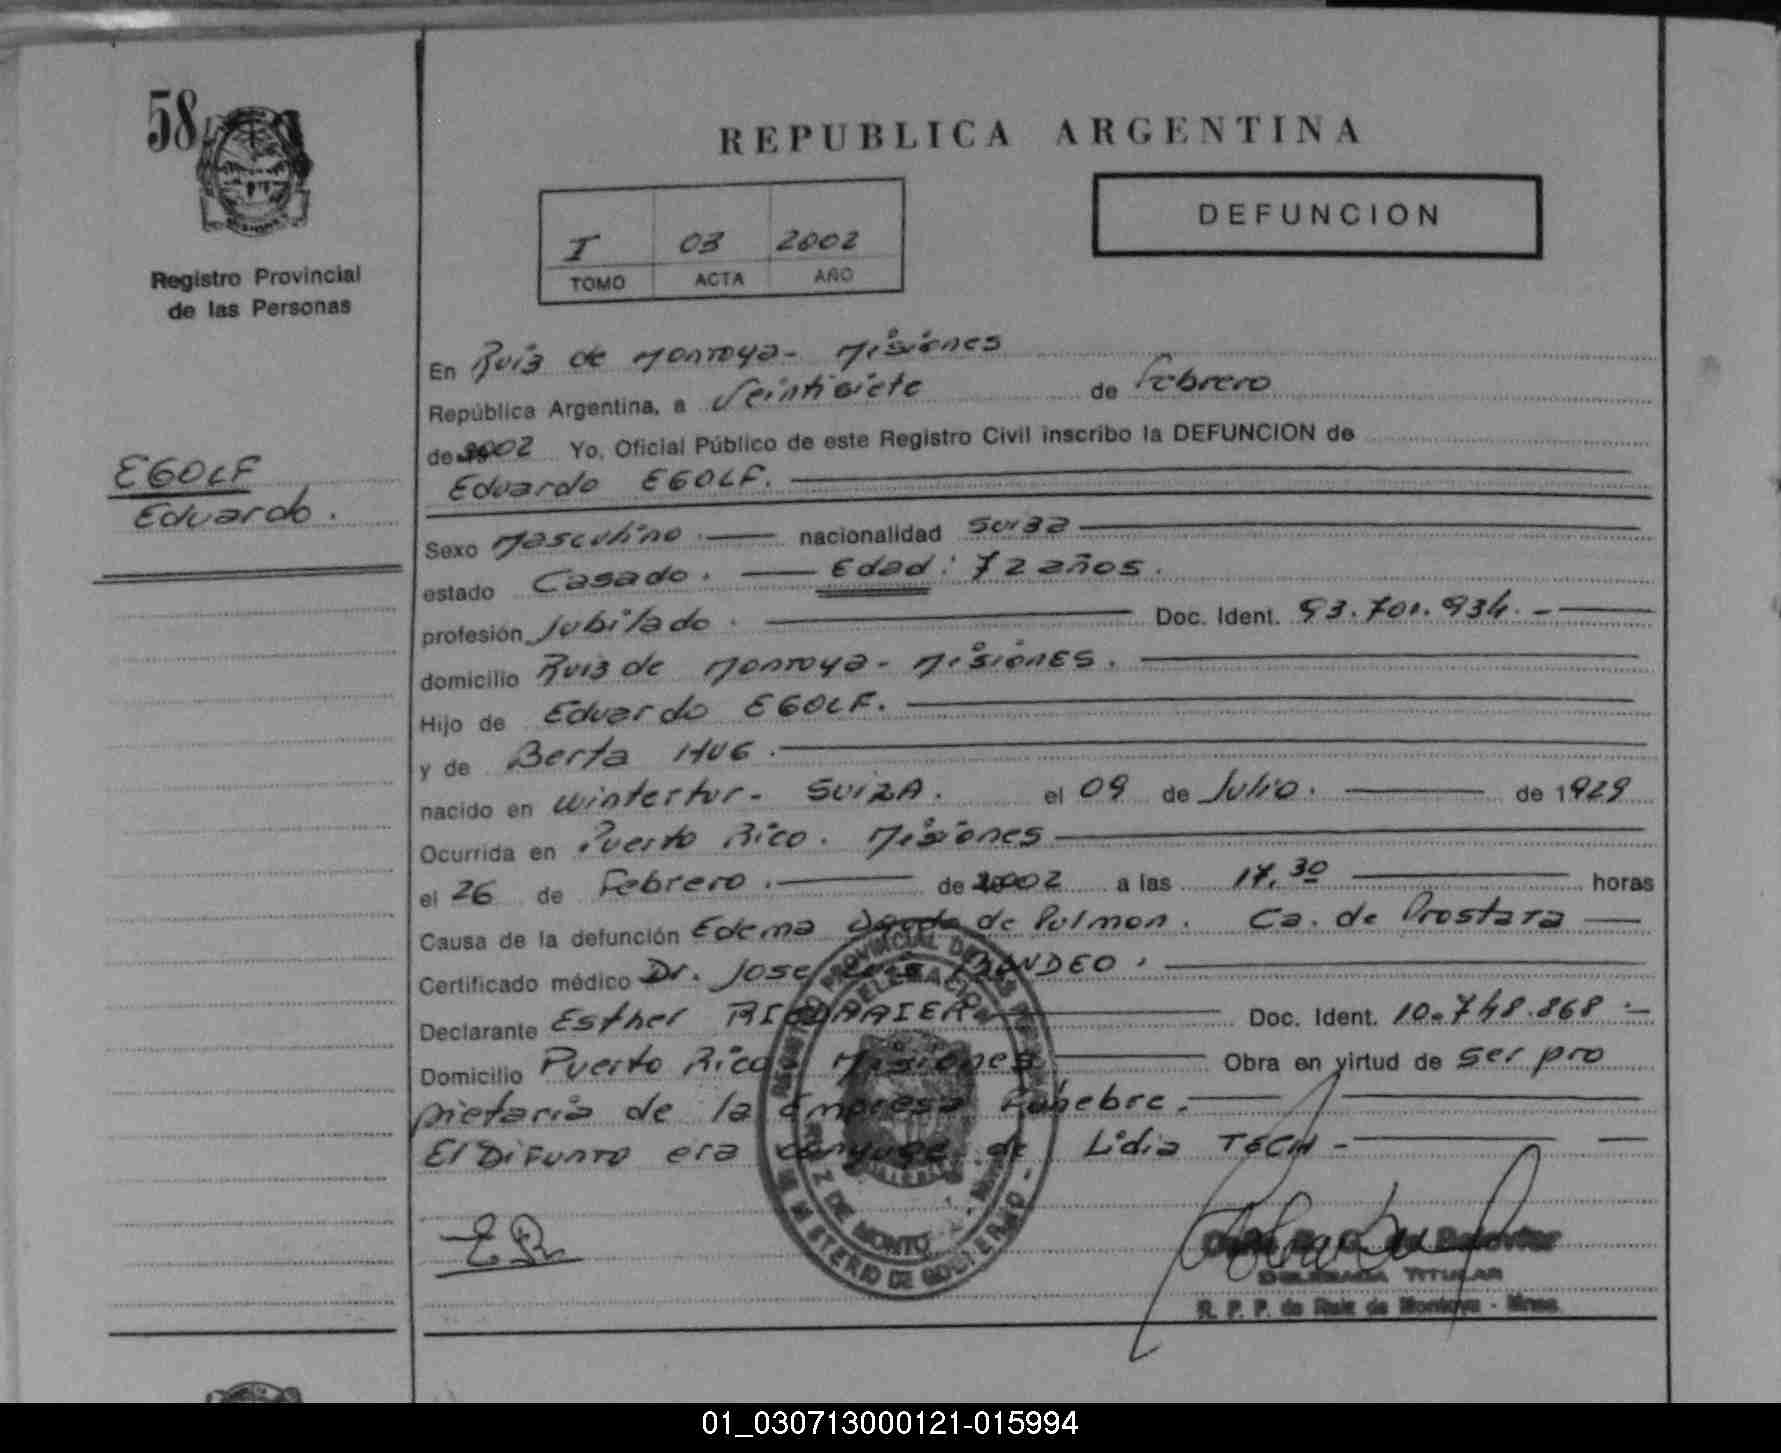 58
REPUBLICA ARGENTINA
DEFUNCION
I 03 2002
TOMO ACTA AÑO
Registro Provincial
de las Personas
EGOLF
Eduardo.
En Ruiz de Montoya - Misiones
República Argentina, a Veintisiete de Febrero
de 2002 Yo, Oficial Público de este Registro Civil inscribo la DEFUNCION de
Eduardo EGOLF.
Sexo Masculino. nacionalidad Suiza
estado Casado. Edad: 72 años.
profesión Jubilado. Doc. Ident. 93.701.934.-
domicilio Ruiz de Montoya - Misiones.
Hijo de Eduardo EGOLF.
y de Berta HUG.
nacido en Wintertur - SUIZA. el 09 de Julio. de 1929
Ocurrida en Puerto Rico. Misiones
el 26 de Febrero. de 2002 a las 17,30 horas
Causa de la defunción Edema Agudo de Pulmon. Ca. de Prostata
Certificado médico Dr. Jose
Declarante Esther Doc. Ident. 10.748.868.-
Domicilio Puerto Rico Misiones Obra en virtud de ser pro
pietaria de la Empresa Funebre.-
El Difunto era conyuge de Lidia TSCH-
REGISTRO PROVINCIAL DE LAS PERSONAS
DELEGACION
RUIZ DE MONTOYA
MINISTERIO DE GOBIERNO
DELEGADA TITULAR
R. P. P. de Ruiz de Montoya - Mnes.
01_030713000121-015994